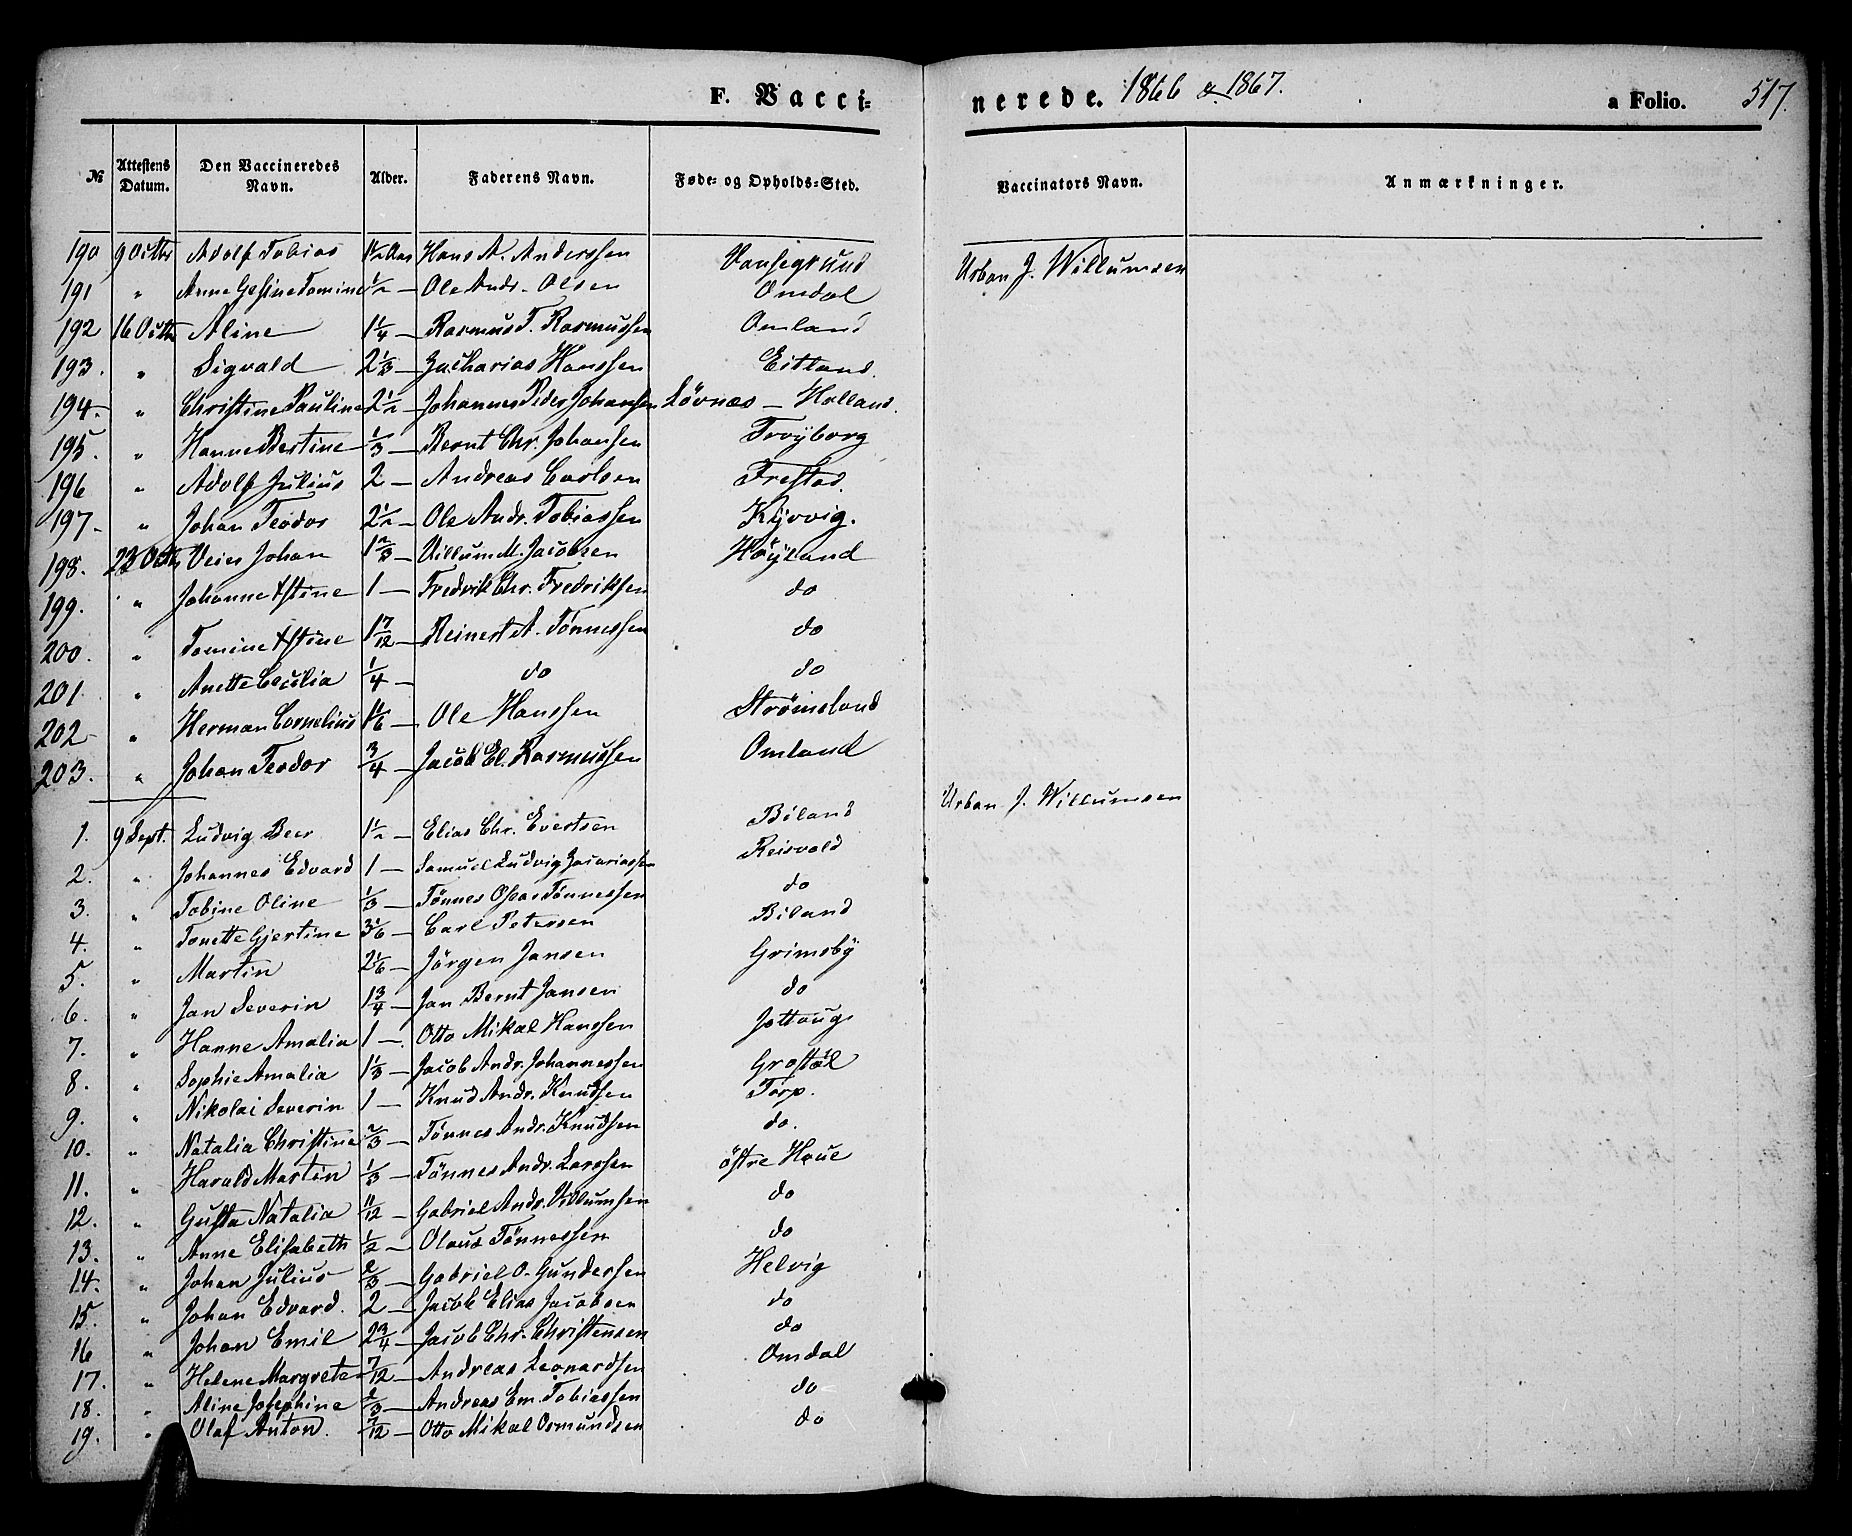 F. Vacci=
nerede. 1866 & 1867.
a Folio. 517.
№ Attestens Datum. Den Vaccineredes Navn. Alder. Faderens Navn. Føde- og Opholds-Sted. Vaccinators Navn. Anmærkninger.
190 9 Octbr Adolf Tobias 1½ Aar Hans A. Anderssen Vansegrund Urban J. Willumsen
191 " Anne Gesine Tomine ½ — Ole Andr. Olsen Omdal
192 16 Octbr Aline 1¼ — Rasmus T. Rasmussen Omland
193. " Sigvald 2⅓ — Zacharias Hanssen Eitland.
194. " Christine Pauline 2½ — Johannes Peder Johansen Lövnæs — Holland.
195. " Hanne Bertine ⅓ — Bernt Chr. Johansen Tröyborg
196 " Adolf Julius 2 — Andreas Carlsen Frestad.
197. " Johan Teodor 2½ — Ole Andr. Tobiassen Kjörvig.
198. 23 Octb Veier Johan 1⅔ — Villum M. Jacobsen Höyland
199. " Johanne Astine 1 — Fredrik Chr. Fredriksen do
200. " Tomine Astine 1 7/12 — Reinert A. Tönnessen do
201. " Anette Cecilia ¼ — do do
202 " Herman Cornelius 1⅙ — Ole Hanssen Strömsland
203. " Johan Teodor ¾ — Jacob El. Rasmussen Omland
1. 9 Sept. Ludvig Beer 1½ — Elias Chr. Evertsen Biland Urban J. Willumsen
2. " Johannes Edvard 1 — Samuel Ludvig Zacariassen Reisvold
3. " Tobine Oline ⅓ — Tönnes Oscar Tönnessen do
4. " Tonette Gjertine 3⅙ — Carl Petersen Biland
5. " Martin 2⅙ — Jörgen Jansen Grimsby
6. " Jan Severin 1¾ — Jan Bernt Jansen do
7. " Hanne Amalia 1 — Otto Mikal Hanssen Jöllaug
8. " Sophie Amalia 1⅓ — Jacob Andr. Johannessen Grostöl
9. " Nikolai Severin 1 — Knud Andr. Knudsen Torp.
10. " Natalia Christine ⅔ — Tönnes Andr. Knudsen do.
11. " Harald Martin ⅓ — Tönnes Andr. Larssen östre Haue
12. " Gusta Natalia 11/12 — Gabriel Andr. Villumsen do
13. " Anne Elisabeth ½ — Olaus Tönnessen do
14. " Johan Julius ⅔ — Gabriel O. Gundersen Helvig
15. " Johan Edvard. 2 — Jacob Elias Jacobsen do
16 " Johan Emil 2¾ — Jacob Chr. Christensen do
17. " Helene Margrete 7/12 — Andreas Leonardsen Omdal
18. " Aline Josephine ⅔ — Andreas Em. Tobiassen do
19. " Olaf Anton. 7/12 — Otto Mikal Osmundsen do